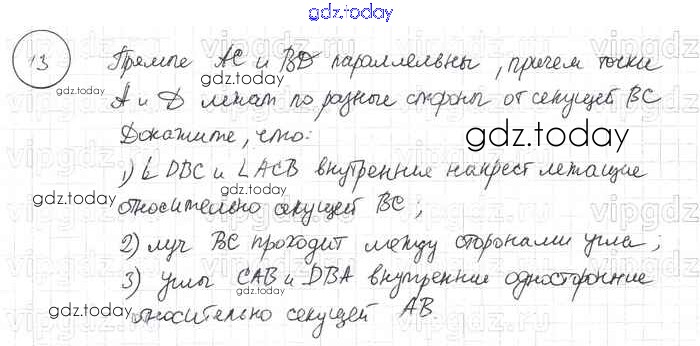 gdz.today
13 Прямые AC и BD параллельны, причем точки
A и D лежат по разные стороны от секущей BC
gdz.today
Докажите, что:
gdz.today
1) ∠ DBC и ∠ ACB внутренние накрест лежащие
gdz.today
относительно секущей BC;
2) луч BC проходит между сторонами угла;
3) углы CAB и DBA внутренние односторонние
относительно секущей AB.
gdz.today